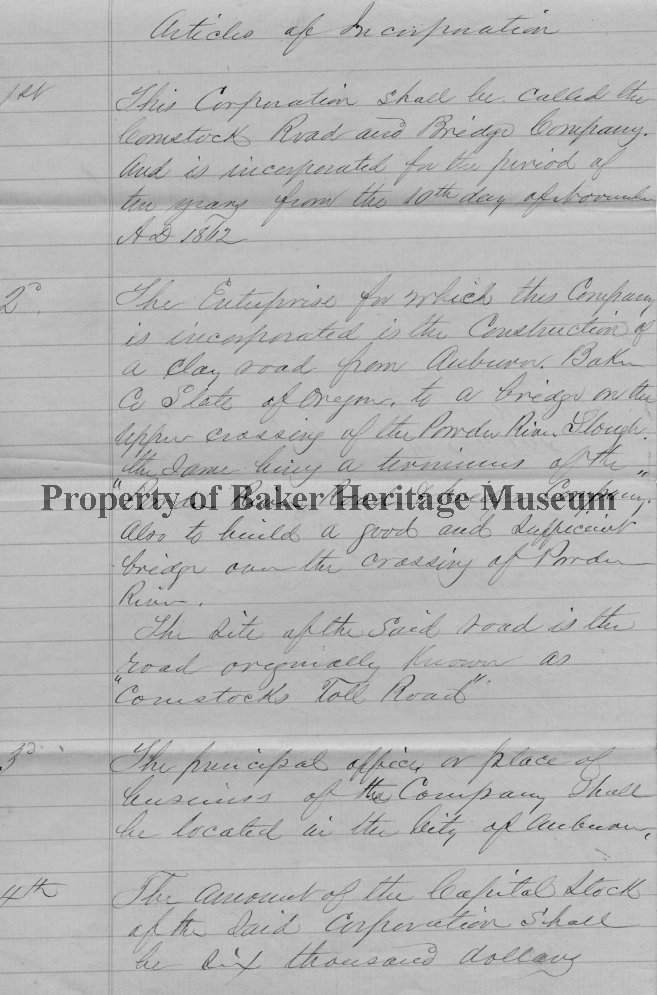 Articles of Incorporation
1st This Corporation shall be called the
Comstock Road and Bridge Company.
And is incorporated for the period of
ten years from the 10th day of November
AD 1862
2d. The Enterprise for which this Company
is incorporated is the Construction of
a clay road from Auburn. Baker
Co State of Oregon. to a bridge on the
upper crossing of the Powder River Slough.
the same being a terminus of the
"Powder River Road Company".
Property of Baker Heritage Museum
Also to build a good and sufficient
bridge over the crossing of Powder
River.
The site of the said road is the
road originally known as
"Comstocks Toll Road"
3d The principal office or place of
business of the Company Shall
be located in the City of Auburn.
4th The amount of the Capital Stock
of the said Corporation Shall
be six thousand dollars